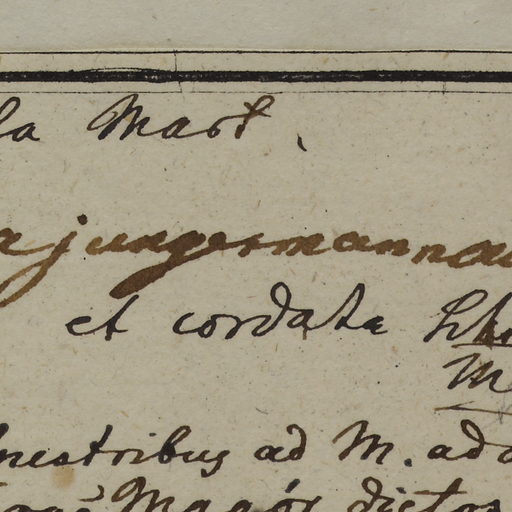 la Mart.
a jungermanna
et cordata
M
nestribus ad M. ad
Magór dictos